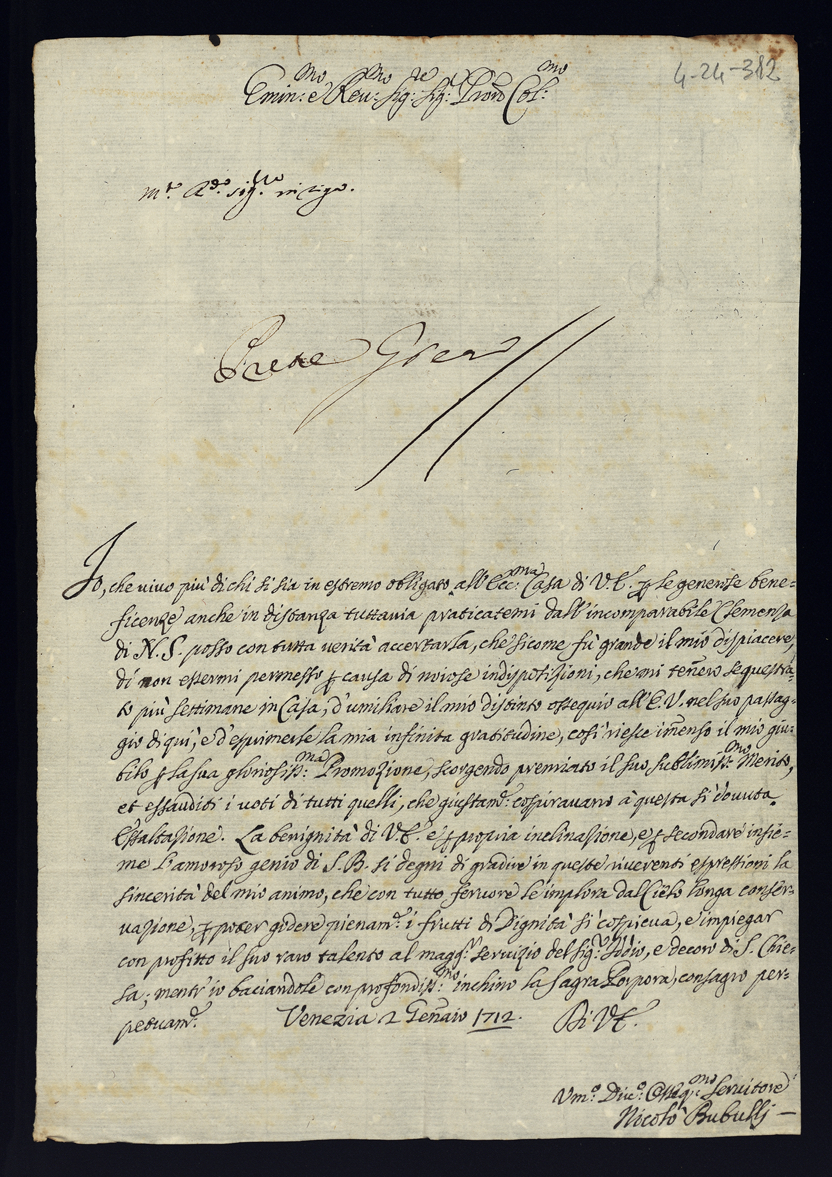 4-24-312
Emin:mo e Reu:mo Sig:re Sig:r Pron Col:mo
Prete Greco
Io, che vivo più di chi si sia in estremo obligato all'Ecc:ma Casa di V.E. per le generose bene-
ficenze anche in distanza tuttavia praticatemi dall'incomparabile Clemenza
di N.S. posso con tutta verità accertarla, che sicome fù grande il mio dispiacere,
di non essermi permesso per causa di noiose indisposizioni, che mi tenero sequestra-
to più settimane in Casa, d'umiliare il mio distinto ossequio all'E.V. nel suo passag-
gio di qui, e d'esprimerle la mia infinita gratitudine, così riesce imenso il mio giu-
bilo per la sua gloriosiss:ma Promozione, scorgendo premiato il suo sublimiss:mo Merito,
et essauditi i voti di tutti quelli, che giustam:te cospiravano à questa sì dovuta
Essaltazione. La benignità di V.E. e per propria inclinazione, e per secondare insie-
me l'amoroso genio di S.B. si degni di gradire in queste riverenti espressioni la
sincerità del mio animo, che con tutto fervore le implora dal Cielo longa conser-
vazione, per poter godere pienam:te i frutti di Dignità sì cospicua, e impiegar
con profitto il suo raro talento al magg:r servizio del Sig:r Iddio, e decoro di S. Chie-
sa; mentr'io baciandole con profondiss:mo inchino la Sagra Porpora, consagro per-
petuam:te
Venezia 2 Genaio 1712. Di V.E.
Vm:o Div:o Osseq:mo Servitore
Nicolò Bubulli